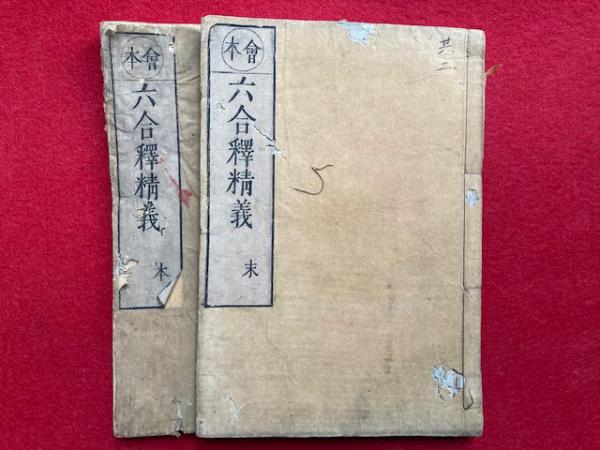 會本
六合釋精義
本
會本
六合釋精義
末
共二